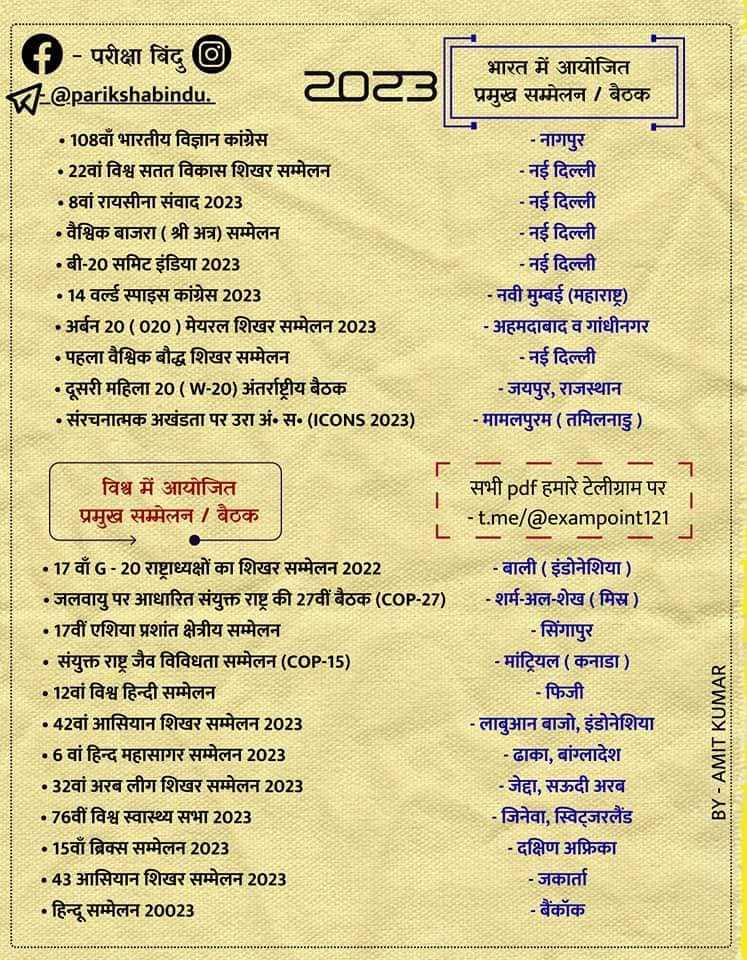 - परीक्षा बिंदु
- @parikshabindu.
2023
भारत में आयोजित
प्रमुख सम्मेलन / बैठक
• 108वाँ भारतीय विज्ञान कांग्रेस - नागपुर
• 22वां विश्व सतत विकास शिखर सम्मेलन - नई दिल्ली
• 8वां रायसीना संवाद 2023 - नई दिल्ली
• वैश्विक बाजरा ( श्री अन्न) सम्मेलन - नई दिल्ली
• बी-20 समिट इंडिया 2023 - नई दिल्ली
• 14 वर्ल्ड स्पाइस कांग्रेस 2023 - नवी मुम्बई (महाराष्ट्र)
• अर्बन 20 ( 020 ) मेयरल शिखर सम्मेलन 2023 - अहमदाबाद व गांधीनगर
• पहला वैश्विक बौद्ध शिखर सम्मेलन - नई दिल्ली
• दूसरी महिला 20 ( W-20) अंतर्राष्ट्रीय बैठक - जयपुर, राजस्थान
• संरचनात्मक अखंडता पर उरा अं॰ स॰ (ICONS 2023) - मामलपुरम ( तमिलनाडु )
विश्व में आयोजित
प्रमुख सम्मेलन / बैठक
सभी pdf हमारे टेलीग्राम पर
- t.me/@exampoint121
• 17 वाँ G - 20 राष्ट्राध्यक्षों का शिखर सम्मेलन 2022 - बाली ( इंडोनेशिया )
• जलवायु पर आधारित संयुक्त राष्ट्र की 27वीं बैठक (COP-27) - शर्म-अल-शेख ( मिस्र )
• 17वीं एशिया प्रशांत क्षेत्रीय सम्मेलन - सिंगापुर
• संयुक्त राष्ट्र जैव विविधता सम्मेलन (COP-15) - मांट्रियल ( कनाडा )
• 12वां विश्व हिन्दी सम्मेलन - फिजी
• 42वां आसियान शिखर सम्मेलन 2023 - लाबुआन बाजो, इंडोनेशिया
• 6 वां हिन्द महासागर सम्मेलन 2023 - ढाका, बांग्लादेश
• 32वां अरब लीग शिखर सम्मेलन 2023 - जेद्दा, सऊदी अरब
• 76वीं विश्व स्वास्थ्य सभा 2023 - जिनेवा, स्विट्जरलैंड
• 15वाँ ब्रिक्स सम्मेलन 2023 - दक्षिण अफ्रिका
• 43 आसियान शिखर सम्मेलन 2023 - जकार्ता
• हिन्दू सम्मेलन 20023 - बैंकॉक
BY - AMIT KUMAR